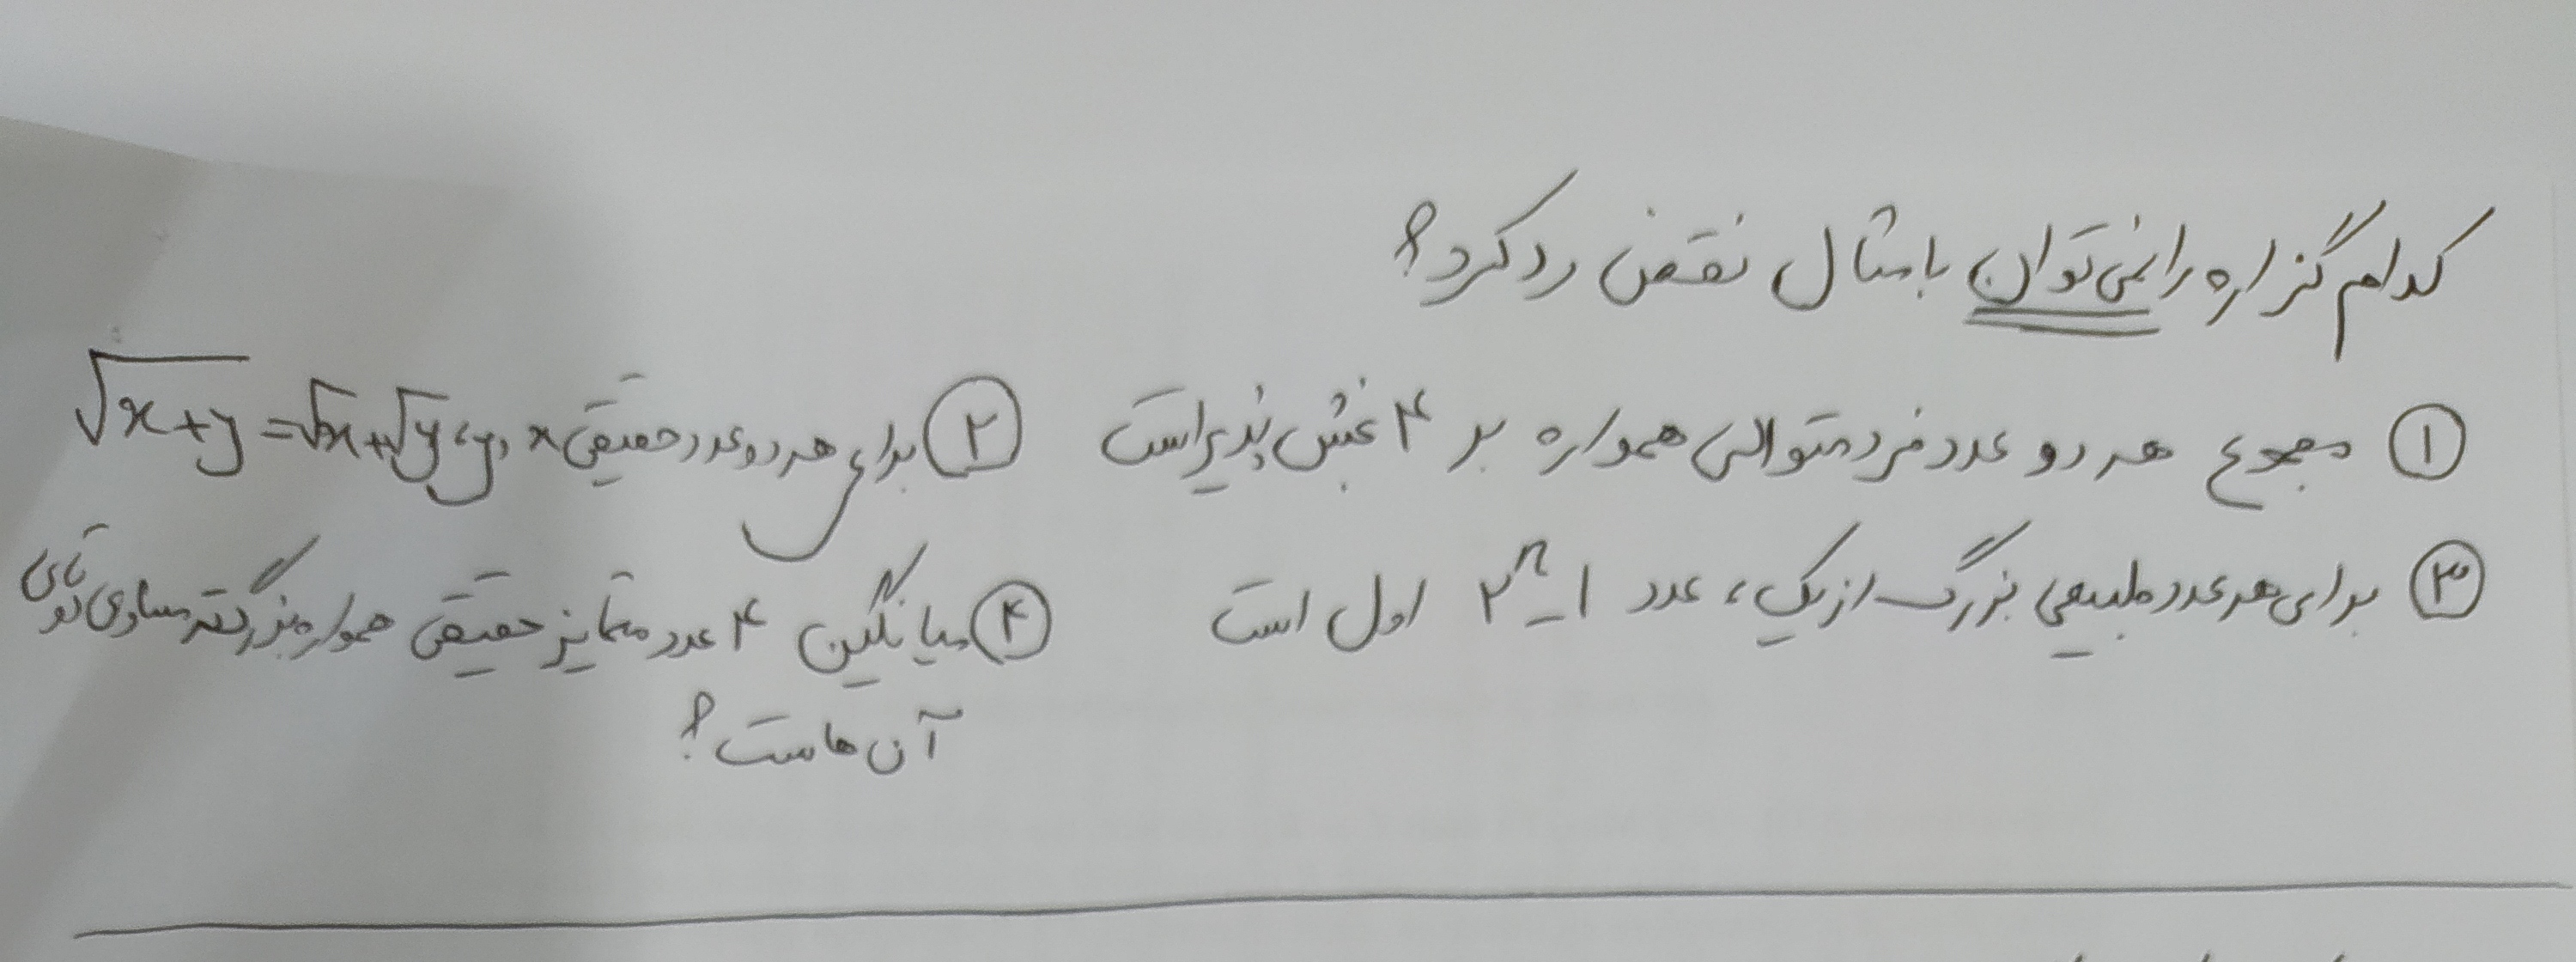 کدام گزاره را نمی‌توان با مثال نقض رد کرد؟
① مجموع هر دو عدد فرد متوالی همواره بر ۴ بخش پذیر است ② برای هر دو عدد حقیقی x و y، √x+y = √x + √y
③ برای هر عدد طبیعی بزرگ از یک، عدد ۲ⁿ-۱ اول است ④ میانگین ۴ عدد متمایز حقیقی همواره بزرگتر مساوی دوتای
آن هاست؟